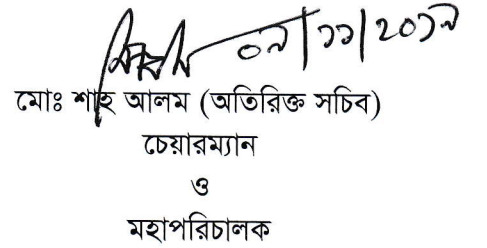 ০৯/১১/২০১৯
মোঃ শাহ আলম (অতিরিক্ত সচিব)
চেয়ারম্যান
ও
মহাপরিচালক